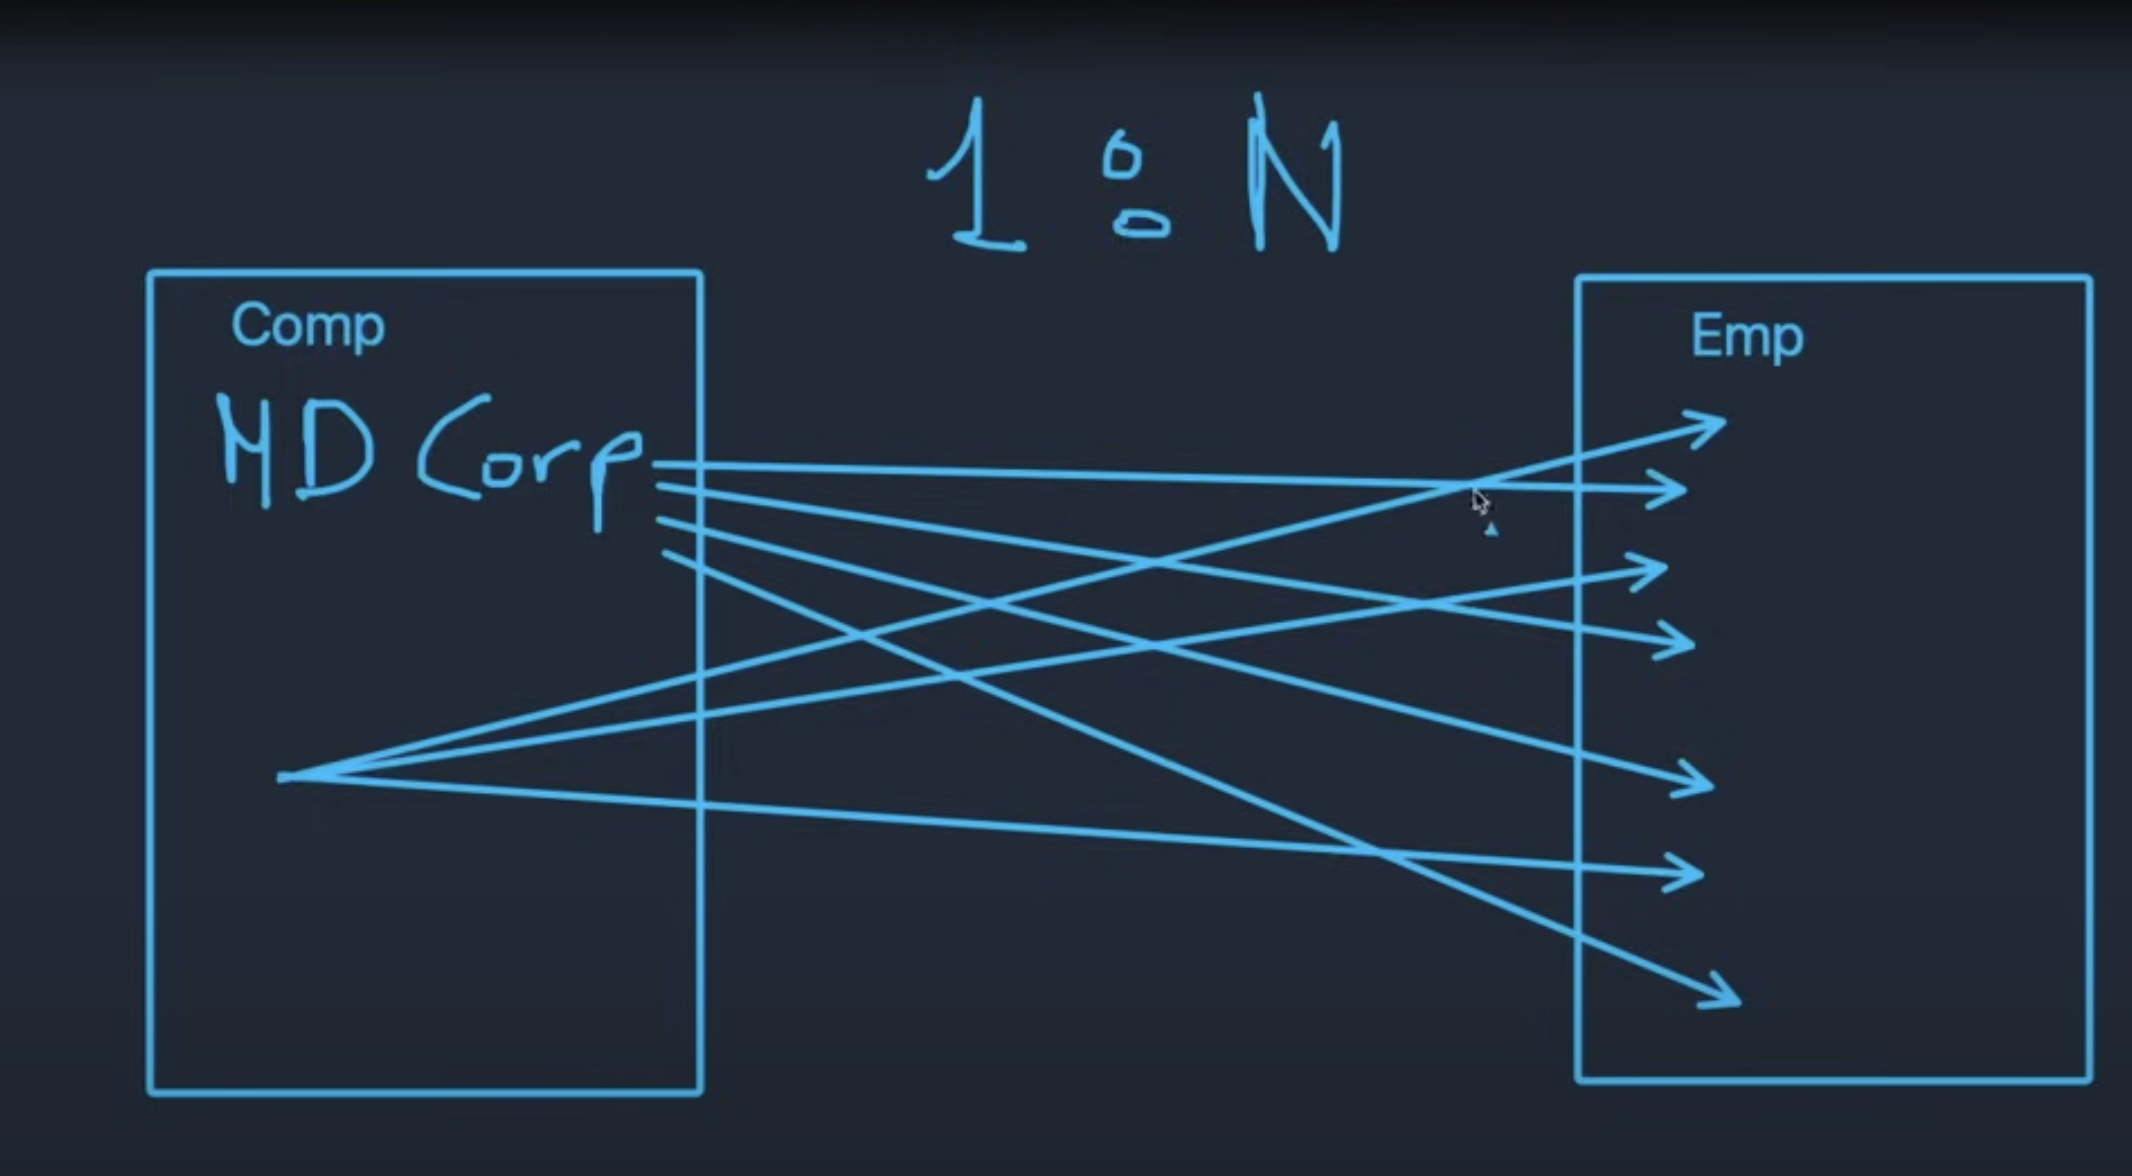 1 : N
Comp
MD Corp
Emp